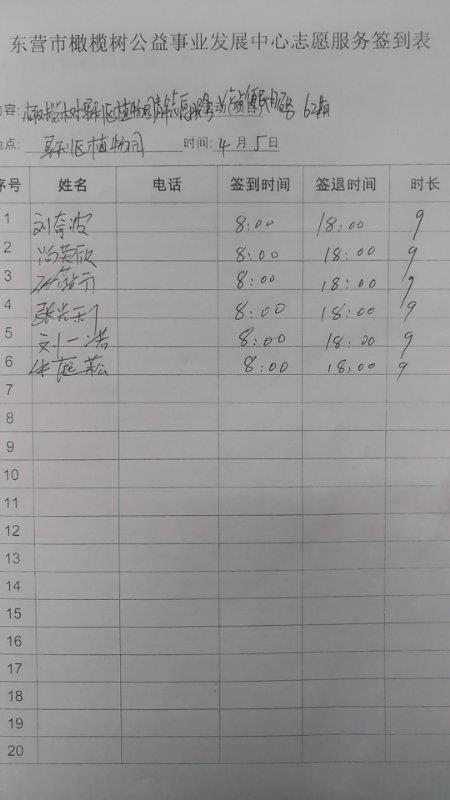 东营市橄榄树公益事业发展中心志愿服务签到表
内容: 橄榄树垦利区植物园 志愿服务 便民服务
地点: 垦利区植物园 时间: 4 月 5 日
序号 姓名 电话 签到时间 签退时间 时长
1 刘奇波 8:00 18:00 9
2 尚英欣 8:00 18:00 9
3 8:00 18:00 9
4 8:00 18:00 9
5 刘一诺 8:00 18:00 9
6 8:00 18:00 9
7
8
9
10
11
12
13
14
15
16
17
18
19
20